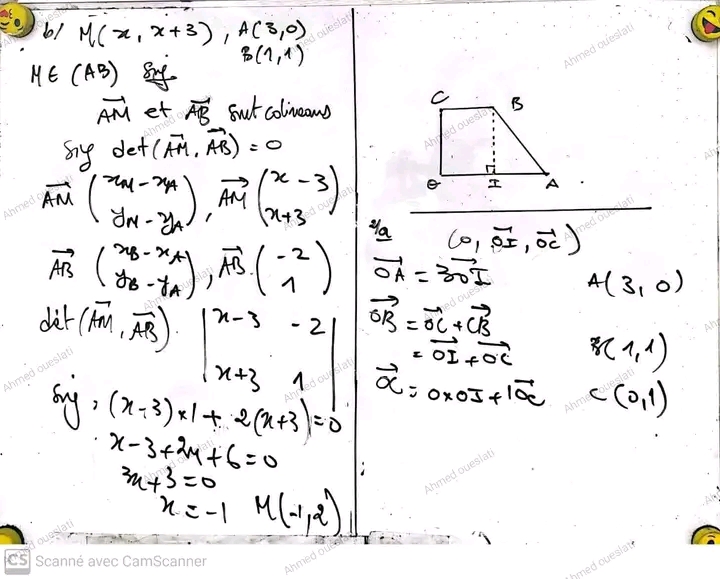 b/ M(x, x+3), A(3,0)
B(1,1)
M ∈ (AB) Sig
AM et AB sont colineaires
Sig det(AM, AB) = 0
AM (xM - xA), AM (x - 3)
(yM - yA) (x+3)
AB (xB - xA), AB (-2)
(yB - yA) (1)
dét(AM, AB) |x-3 -2|
|x+3 1|
Sig, (x-3)×1 + 2(x+3) = 0
x-3+2x+6=0
3x+3=0
x=-1 M(-1,2)
C B
O I A
2/a (O, OI, OC)
OA = 3OI A(3,0)
OB = OC + CB
= OI + OC B(1,1)
OC = 0×OI + 1OC C(0,1)
Ahmed oueslati
CS Scanné avec CamScanner